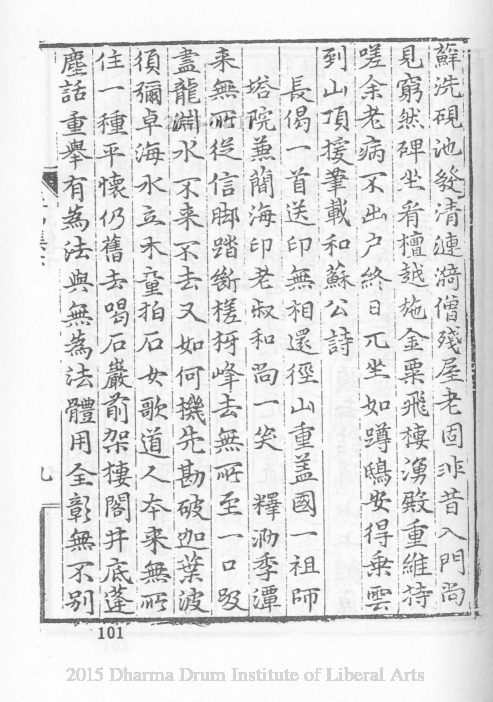 蘚洗硯池發清漣漪僧殘屋老固非昔入門尚
見窮然碑坐看檀越施金粟飛樓湧殿重維持
嗟余老病不出户終日兀坐如蹲鴟安得乗雲
到山頂援筆載和蘇公詩
長偈一首送印無相還徑山重盖國一祖師
塔院兼簡海印老叔和尚一笑 釋泐季潭
来無所從信脚踏斷槎枒峰去無所至一口吸
盡龍淵水不来不去又如何機先勘破迦葉波
須彌卓海水立木童拍石女歌道人本来無所
住一種平懷仍舊去喝石巖前架樓閣井底蓬
塵話重舉有為法與無為法體用全彰無不别
集
九
101
2015 Dharma Drum Institute of Liberal Arts